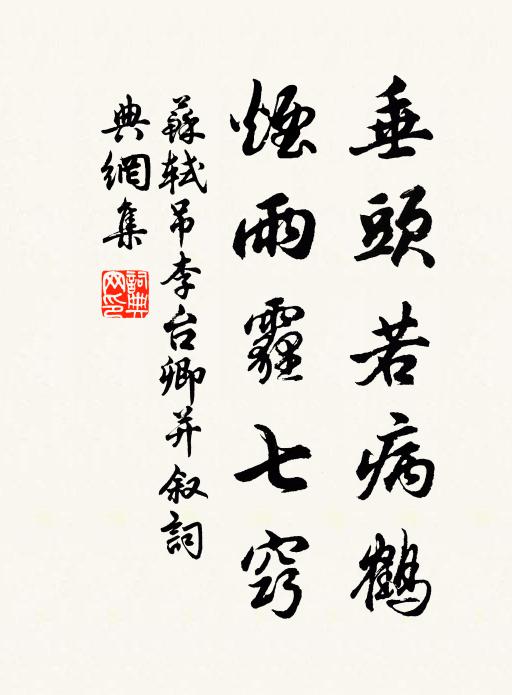 垂頭若病鶴
煙雨霾七竅
蘇軾吊李台卿并叙詞
典網集
詞典網印